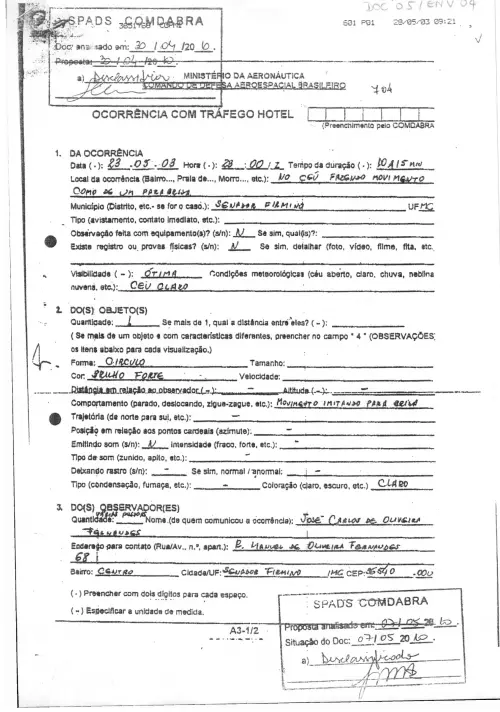 DOC 05/ENV 04
SPADS COMDABRA
601 P01 29/05/03 09:21
Doc analisado em: 30 / 04 /20 10.
Proposta: 30 / 04 /20 10.
a) Desclassificar
MINISTÉRIO DA AERONÁUTICA
COMANDO DE DEFESA AEROESPACIAL BRASILEIRO
704
OCORRÊNCIA COM TRÁFEGO HOTEL
(Preenchimento pelo COMDABRA
1. DA OCORRÊNCIA
Data (·): 23 .05 . 03 Hora (·): 23 : 00 / Z Tempo da duração (·): 10 A 15 MIN
Local da ocorrência (Bairro..., Praia de..., Morro..., etc.): NO CÉU FAZENDO MOVIMENTO
COMO DE UM PARA BRISA
Município (Distrito, etc.- se for o caso.): SENADOR FIRMINO UF MG
Tipo (avistamento, contato imediato, etc.):
Observação feita com equipamento(s)? (s/n): N Se sim, qual(is)?:
Existe registro ou provas físicas? (s/n): N Se sim, detalhar (foto, vídeo, filme, fita, etc.
Visibilidade ( ~ ): ÓTIMA Condições meteorológicas (céu aberto, claro, chuva, neblina
nuvens, etc.): CEU CLARO
2. DO(S) OBJETO(S)
Quantidade: 1 Se mais de 1, qual a distância entre eles? ( ~ ):
( Se mais de um objeto e com características diferentes, preencher no campo " 4 " (OBSERVAÇÕES,
os itens abaixo para cada visualização.)
Forma: CIRCULO Tamanho:
Cor: BRILHO FORTE Velocidade:
Distância em relação ao observador (~): - Altitude (~): -
Comportamento (parado, deslocando, zigue-zague, etc.): MOVIMENTO IMITANDO PARA BRISA
Trajetória (de norte para sul, etc.): -
Posição em relação aos pontos cardeais (azimute): -
Emitindo som (s/n): N intensidade (fraco, forte, etc.): -
Tipo de som (zunido, apito, etc.): -
Deixando rastro (s/n): - Se sim, normal / anormal: -
Tipo (condensação, fumaça, etc.): - Coloração (claro, escuro, etc.) CLARO
3. DO(S) OBSERVADOR(ES)
Quantidade: VÁRIAS PESSOAS Nome (de quem comunicou a ocorrência): JOSÉ CARLOS DE OLIVEIRA
FERNANDES
Endereço para contato (Rua/Av., n.º, apart.): R. MANUEL DE OLIVEIRA FERNANDES
68
Bairro: CENTRO Cidade/UF: SENADOR FIRMINO /MG CEP: 36540 .000
(·) Preencher com dois dígitos para cada espaço.
(~) Especificar a unidade de medida.
A3-1/2
SPADS COMDABRA
Proposta analisada em: 07/ 05 20 10.
Situação do Doc: 07/ 05 20 10.
a) Desclassificado